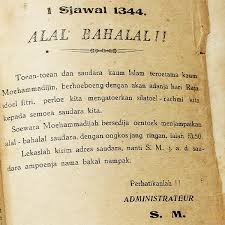 1 Sjawal 1344.
ALAL BAHALAL!!
Toean-toean dan saudara kaum Islam teroetama kaum
Moehammadijin, berhoeboeng dengan akan adanja hari Raja
'idoel fitri, perloe kita mengatoerkan silatoel-rachmi kita
kepada semoea saudara kita.
Soewara Moehammadijah bersedija oentoek menjampaikan
alal-bahalal saudara, dengan ongkos jang ringan, ialah f0.50
Lekaslah kirim adres saudara, nanti S. M. j. a. d. sau-
dara ampoenja nama bakal nampak.
Perhatikanlah!!
ADMINISTRATEUR
S. M.